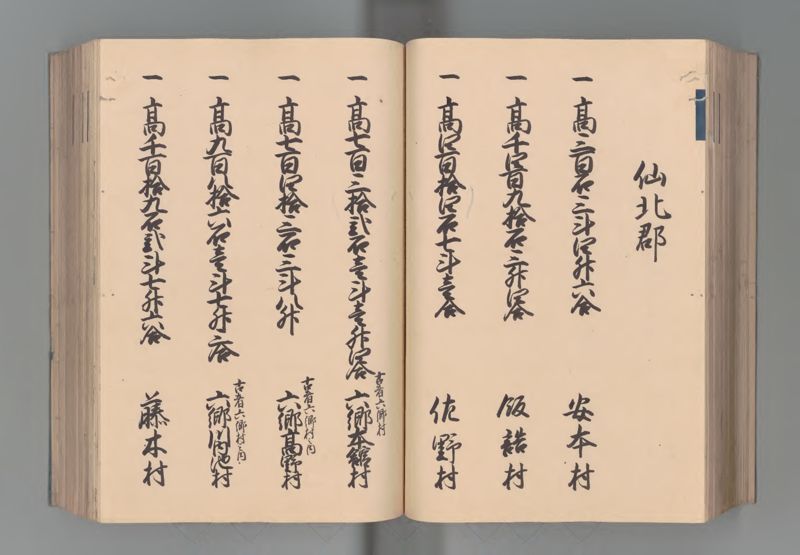 仙北郡
一 高三百石三斗四升六合 安本村
一 高千四百九拾石三升四合 飯詰村
一 高四百拾四石七斗壱合 佐野村
一 高七百三拾弐石壱斗壱升四合 六郷本館村
古者六郷村
一 高七百四拾三石三斗八升 六郷高野村
古者六郷村之内
一 高九百八拾六石壱斗七升 六郷村
古者六郷村之内
一 高千百拾九石弐斗七升六合 藤木村